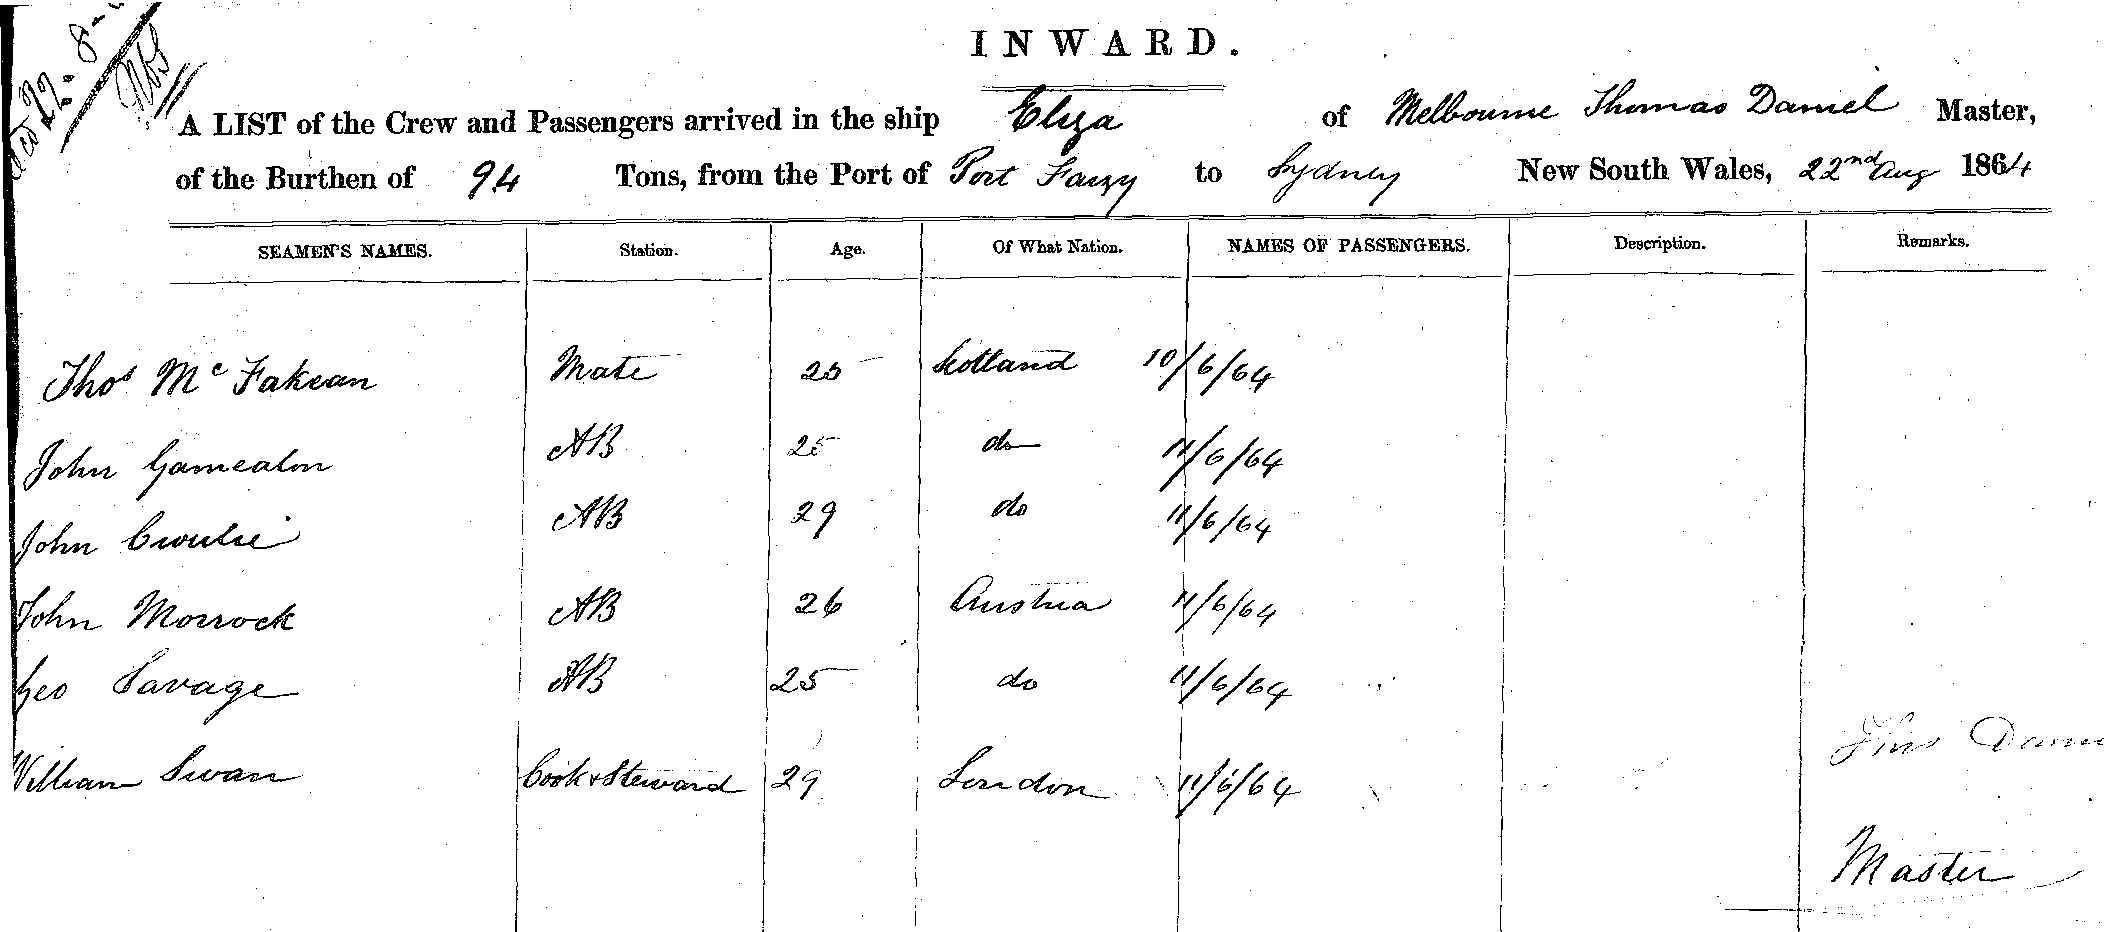 22-8-
INWARD.
A LIST of the Crew and Passengers arrived in the ship Eliza of Melbourne Thomas Daniel Master,
of the Burthen of 94 Tons, from the Port of Port Fairy to Sydney New South Wales, 22nd Aug 1864
SEAMEN'S NAMES. Station. Age. Of What Nation. NAMES OF PASSENGERS. Description. Remarks.
Thos Mc Fakean Mate 25 Scotland 10/6/64
John Gamealon AB 25 do 11/6/64
John AB 29 do 11/6/64
John Morrock AB 26 Austria 11/6/64
Geo Savage AB 25 do 11/6/64
William Swan Cook & Steward 29 London 11/6/64
Thos Danie
Master